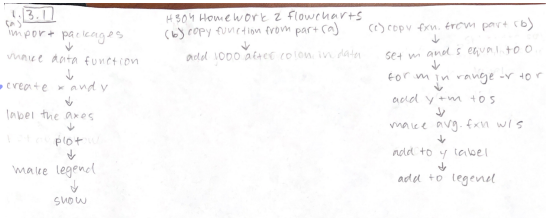 1. 3.1
H304 Homework 2 Flowcharts
(a)
import packages
↓
make data function
↓
create x and y
↓
label the axes
↓
plot
↓
make legend
↓
show
(b) copy function from part (a)
↓
add 1000 after colon in data
(c) copy fxn. from part (b)
↓
set m and s equal to 0
↓
for m in range -r to r
↓
add y+m to s
↓
make avg. fxn w/ s
↓
add to y label
↓
add to legend